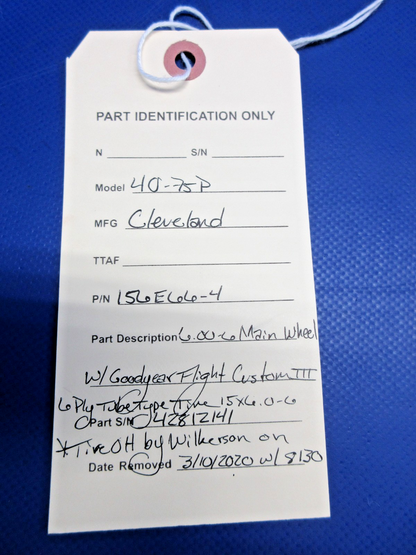 PART IDENTIFICATION ONLY
N ____ S/N ____
Model 40-75P
MFG Cleveland
TTAF ____
P/N 156E66-4
Part Description 6.00-6 Main Wheel
W/ Goodyear Flight Custom III
6 Ply Tube Type Tire 15x6.0-6
Part S/N 042812141
*Tire OH by Wilkerson on
Date Removed 3/10/2020 w/ 8130